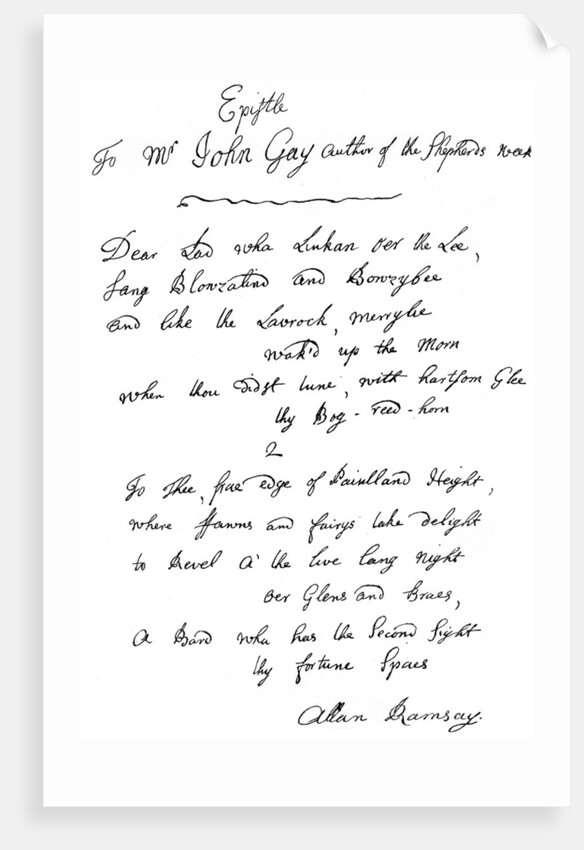 Epistle
To Mr John Gay author of the Shepherds week
Dear Lad wha Linkan o'er the Lee,
Sang Blowzalind and Bowzybee
and like the Lavrock, merrylie
wak'd up the Morn
when thou didst tune, with hartsom Glee
thy Bog-reed-horn
2
To Thee, frae edge of Pentland Height,
where ffawns and fairys take delight
to Revel a' the live lang Night
o'er Glens and Braes,
a Bard wha has the Second Sight
thy fortune Spaes
Allan Ramsay.